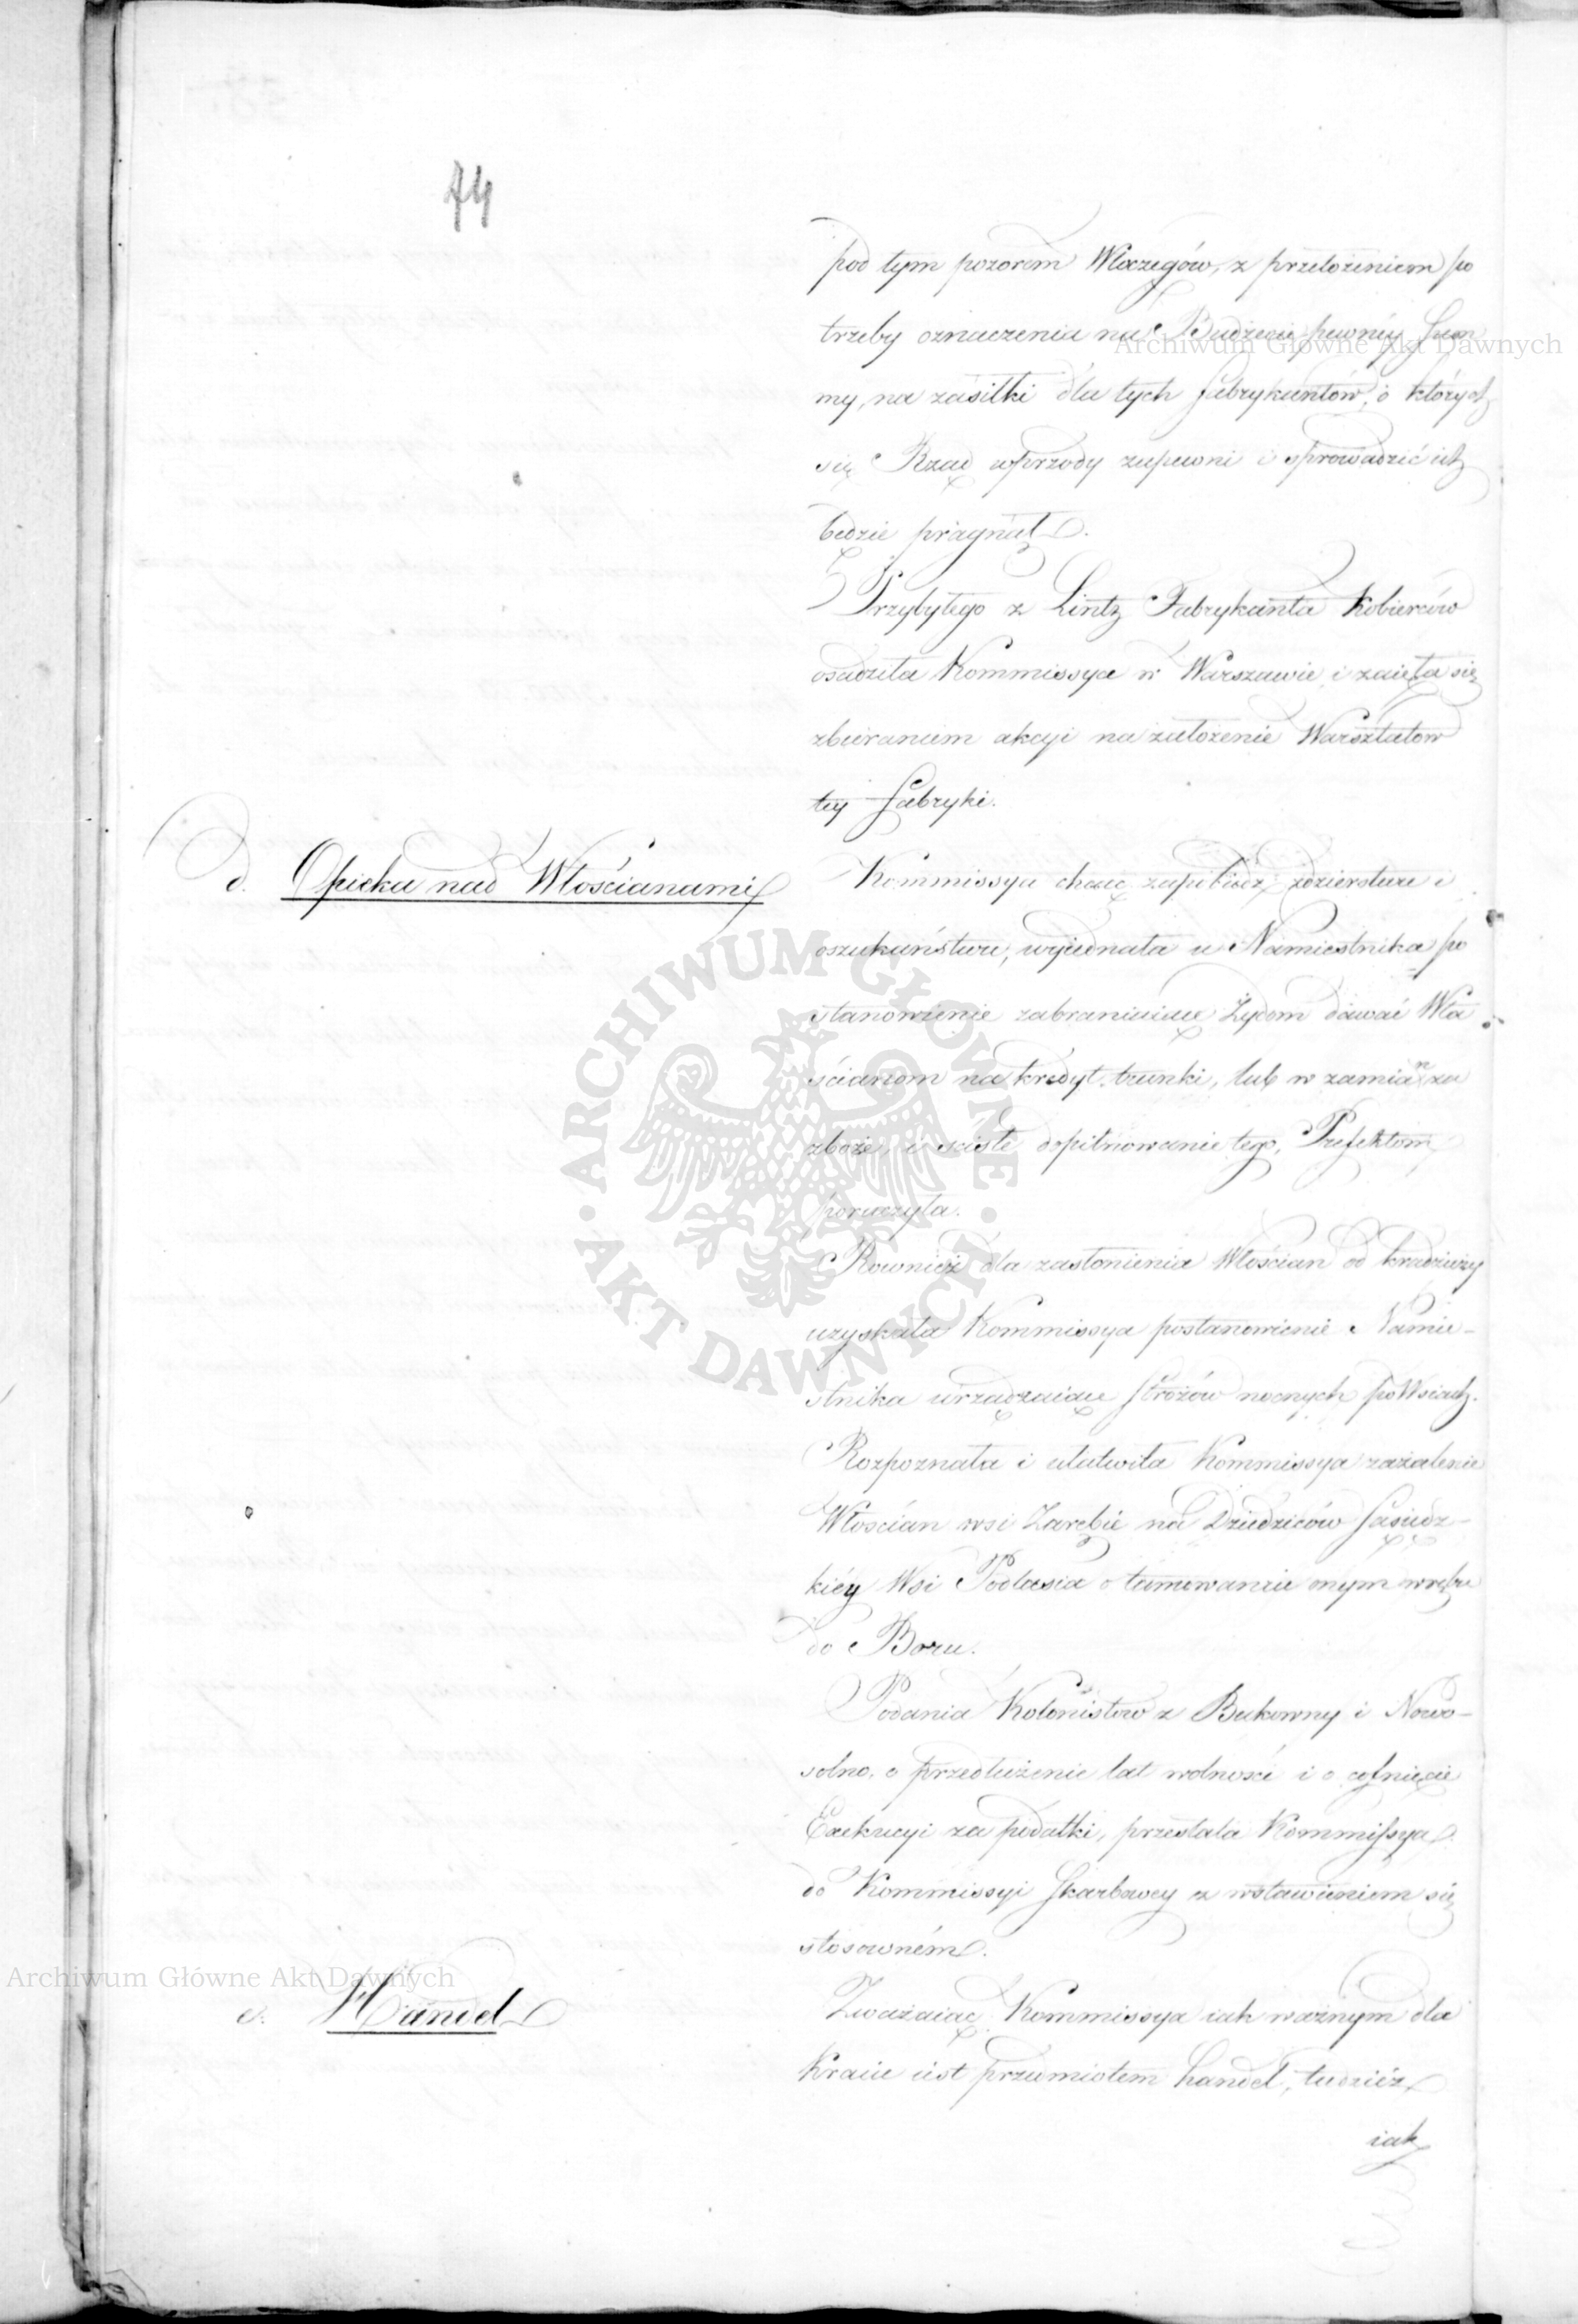 74
pod tym pozorem Włóczęgów, z przełożeniem po
trzeby oznaczenia na Budżecie pewnéy Sum
my, na zasiłki dla tych Fabrykantów, o których
się Rząd wprzódy zapewni i sprowadzić ich
będzie pragnął.
Przybyłego z Lintz Fabrykanta Kobierców
osadziła Kommissya w Warszawie i zaięła się
zbieraniem akcyi na założenie Warsztatów
téy Fabryki.
d. Opieka nad Włościanami
Kommissya chcąc zapobiedz zdzierstwu i
oszukaństwu, wyiednała u Namiestnika po
stanowienie zabraniaiące Żydom dawać Wło
ścianom na kredyt trunki, lub w zamian za
zboże, i ścisłe dopilnowanie tego, Prefektom
poruczyła.
Rownież dla zasłonienia Włościan od kradzieży
uzyskała Kommissya postanowienie Namie-
stnika urządzaiące Stróżów nocnych po Wsiach.
Rozpoznała i ułatwiła Kommissya zażalenie
Włościan wsi Zarębie na Dziedziców Sąsiedz-
kiéy Wsi Podlasia o tamowanie onym wrębu
do Boru.
Podania Kolonistów z Bukowny i Nowo-
solno, o przedłużenie lat wolności i o cofnięcie
Exekucyi za podatki, przesłała Kommissya
do Kommissyi Skarbowey z wstawieniem się
stosowném.
e. Handel
Zważaiąc Kommissya iak ważnym dla
Kraiu iest przedmiotem handel, tudzież
iak
Archiwum Główne Akt Dawnych
Archiwum Główne Akt Dawnych
ARCHIWUM GŁÓWNE AKT DAWNYCH